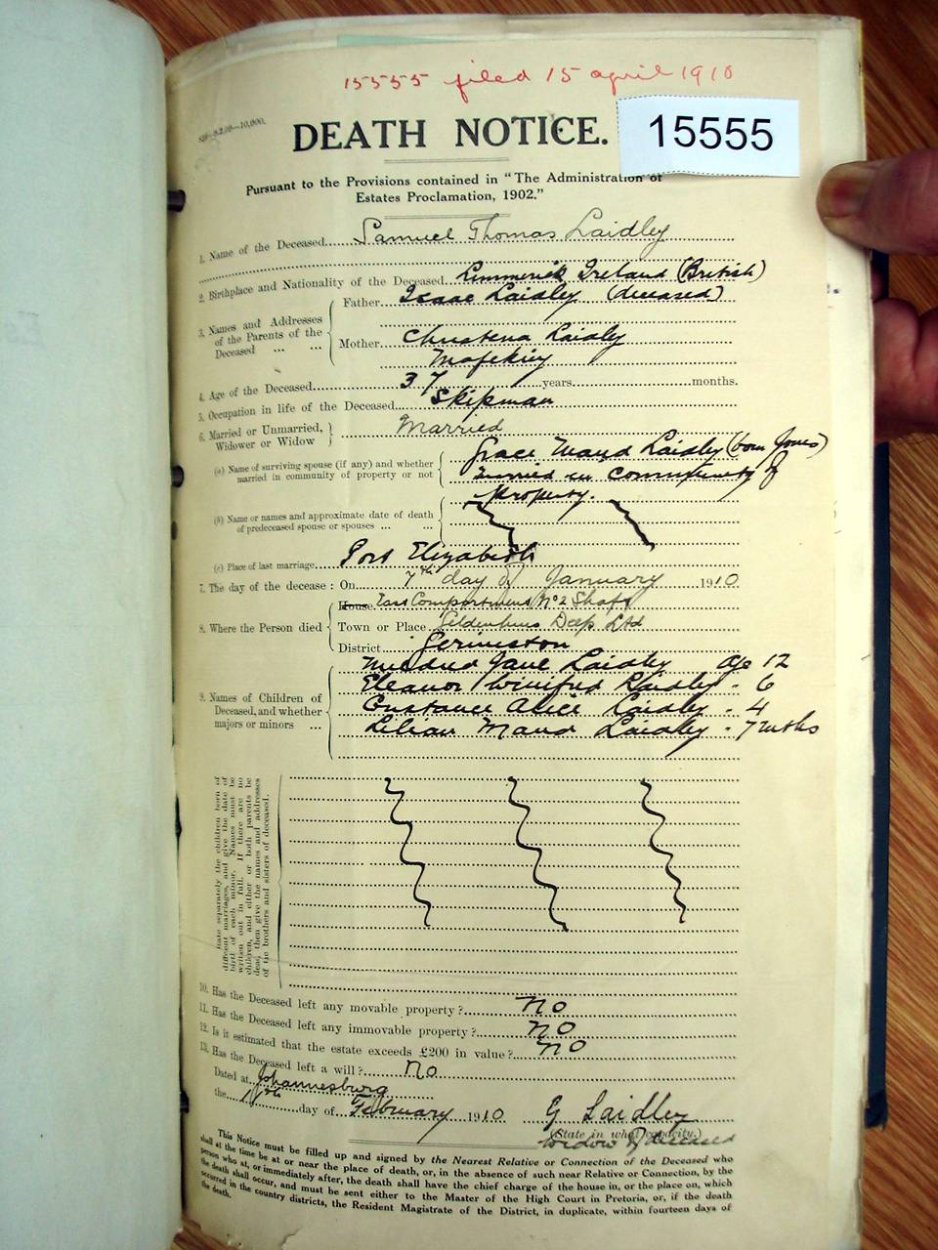 15555 filed 15 april 1910
15555
DEATH NOTICE.
Pursuant to the Provisions contained in "The Administration of
Estates Proclamation, 1902."
1. Name of the Deceased Samuel Thomas Laidley
2. Birthplace and Nationality of the Deceased Limmerick Ireland (British)
3. Names and Addresses of the Parents of the Deceased ... ...
Father Isaac Laidley (deceased)
Mother Christena Laidley
Mafeking
4. Age of the Deceased 37 years months.
5. Occupation in life of the Deceased Skipman
6. Married or Unmarried, Widower or Widow Married
(a) Name of surviving spouse (if any) and whether married in community of property or not
Grace Maud Laidley (born Jones)
Married in community of
property.
(b) Name or names and approximate date of death of predeceased spouse or spouses ... ...
(c) Place of last marriage Port Elizabeth
7. The day of the decease: On 7th day of January 1910
8. Where the Person died
House East Compartment No 2 Shaft
Town or Place Geldenhuis Deep Ltd
District Germiston
9. Names of Children of Deceased, and whether majors or minors ...
Mildred Jane Laidley age 12
Eleanor Winifred Laidley - 6
Constance Alice Laidley - 4
Lilian Maud Laidley - 7 mths
State separately the children born of
different marriages, and give the date of
birth of each minor. Names must be
written out in full. If there are no
children, and either or both parents be
dead, then give the names and addresses
of the brothers and sisters of deceased.
10. Has the Deceased left any movable property? no
11. Has the Deceased left any immovable property? no
12. Is it estimated that the estate exceeds £200 in value? no
13. Has the Deceased left a will? no
Dated at Johannesburg
the day of February 1910 G Laidley
(State in what capacity.)
Widow of deceased
This Notice must be filled up and signed by the Nearest Relative or Connection of the Deceased who
shall at the time be at or near the place of death, or, in the absence of such near Relative or Connection, by the
person who at, or immediately after, the death shall have the chief charge of the house in, or the place on, which
the death shall occur, and must be sent either to the Master of the High Court in Pretoria, or, if the death
occurred in the country districts, the Resident Magistrate of the District, in duplicate, within fourteen days of
the death.